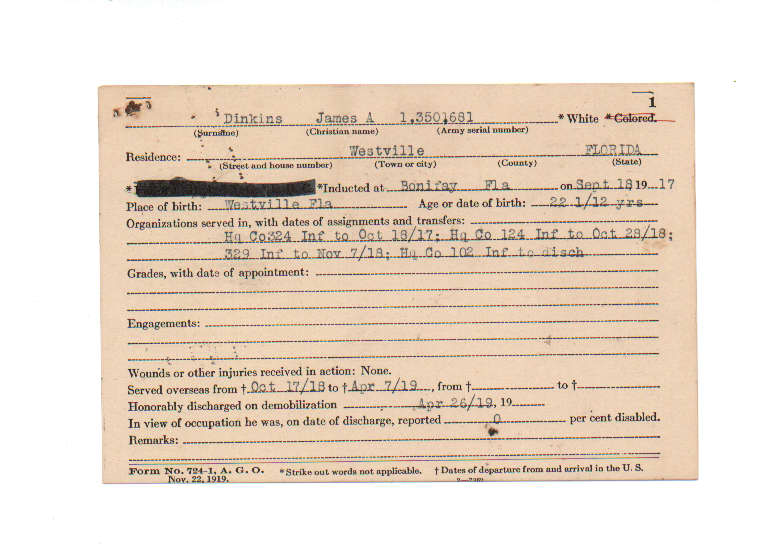 1
Dinkins James A 1,350,681 * White * Colored.
(Surname) (Christian name) (Army serial number)
Residence: Westville FLORIDA
(Street and house number) (Town or city) (County) (State)
* *Inducted at Bonifay Fla on Sept 18 19 17
Place of birth: Westville Fla Age or date of birth: 22 1/12 yrs
Organizations served in, with dates of assignments and transfers:
Hq Co324 Inf to Oct 18/17; Hq Co 124 Inf to Oct 28/18;
329 Inf to Nov 7/18; Hq Co 102 Inf to disch
Grades, with date of appointment:
Engagements:
Wounds or other injuries received in action: None.
Served overseas from † Oct 17/18 to † Apr 7/19, from † to †
Honorably discharged on demobilization Apr 26/19, 19
In view of occupation he was, on date of discharge, reported 0 per cent disabled.
Remarks:
Form No. 724-1, A. G. O. *Strike out words not applicable. † Dates of departure from and arrival in the U. S.
Nov. 22, 1919.